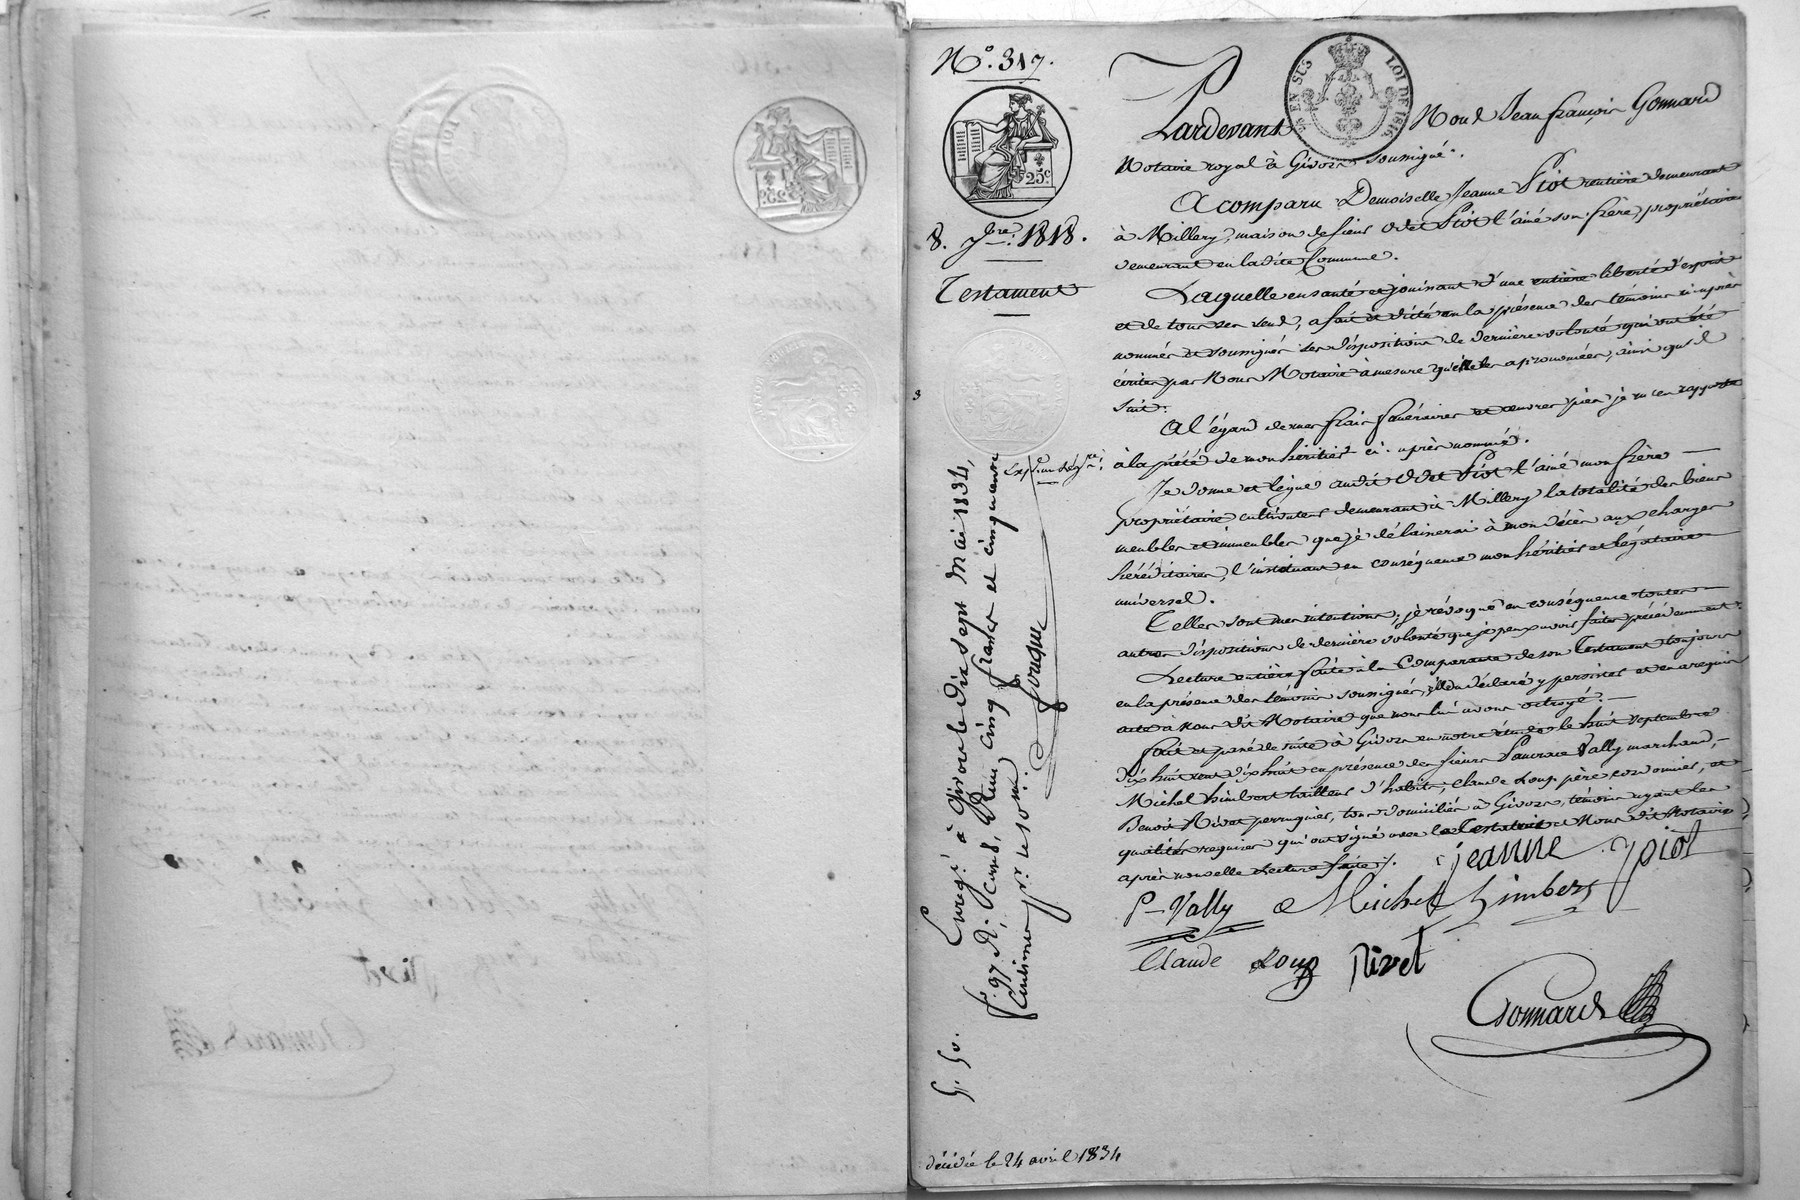 N.° 317.
25c
8. 7bre. 1818.
Testament
EN SUS LOI DE 1816
Pardevant Nous Jean françois Gonnard
Notaire royal à Givors soussigné.
A comparu Demoiselle Jeanne Piot rentière demeurant
à Millery, maison de sieur Odet Piot l'ainé son frère, propriétaire
demeurant en ladite Commune.
Laquelle en santé et jouissant d'une entière liberté d'esprit
et de tous ses sens, a fait et dicté en la présence des témoins ci-après
nommés et soussignés ses dispositions de dernière volonté qui ont été
écrites par Nous Notaire à mesure qu'elle les a prononcées, ainsi qu'il
suit.
A l'égard de mes frais funéraires et œuvres pies je m'en rapporte
à la piété de mon héritier ci-après nommé.
Je donne et lègue audit Odet Piot l'ainé mon frère
propriétaire cultivateur demeurant à Millery la totalité des biens
meubles et immeubles que je délaisserai à mon décès aux charges
héréditaires, l'instituant en conséquence mon héritier et légataire
universel.
Telles sont mes intentions, je révoque en conséquence toutes
autres dispositions de dernière volonté que je peux avoir faites précédemment.
Lecture entière faite à la Comparante de son Testament toujours
en la présence des témoins soussignés, elle a déclaré y persister et en a requis
acte à Nous dit Notaire que nous lui avons octroyé.
fait et passé de suite à Givors en notre étude le huit septembre
dix huit cent dix huit en présence des sieurs Pancrace Vally marchand,
Michel himbert tailleur d'habits, Claude Loup père cordonnier, et
Benoit Rivet perruquier, tous domiciliés à Givors, témoins ayant les
qualités requises qui ont signé avec la Testatrice et Nous dit Notaire
après nouvelle Lecture faite ./.
jeanne piot
P-Vally Michel himbert
Claude Loup Rivet
Gonnard
Enreg.é à Givors le dix sept Mai 1834,
f.° 97 R.° Reçu cinq francs et cinquante
Centimes p.r le 10me.
Fougue
décédée le 24 avril 1834